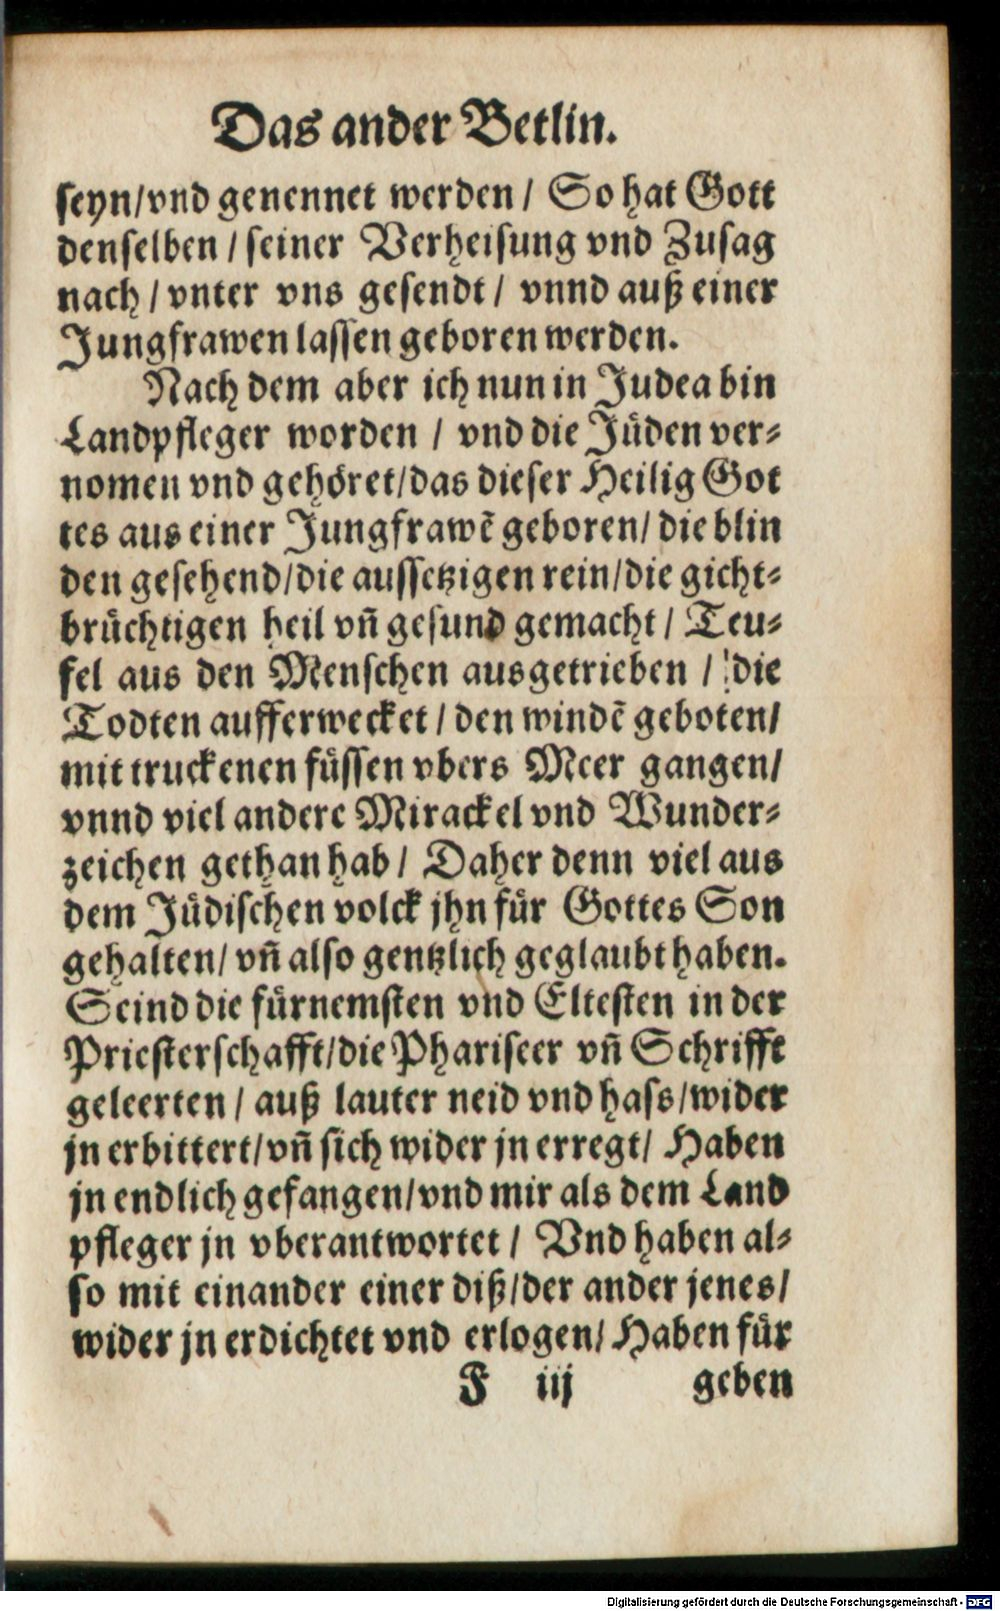 Das ander Betlin.
seyn/vnd genennet werden / So hat Gott
denselben / seiner Verheisung vnd Zusag
nach / vnter vns gesendt / vnnd auß einer
Jungfrawen lassen geboren werden.
Nach dem aber ich nun in Judea bin
Landpfleger worden / vnd die Jüden ver-
nomen vnd gehöret/das dieser Heilig Got
tes aus einer Jungfrawẽ geboren/ die blin
den gesehend/die aussetzigen rein/die gicht-
brüchtigen heil vñ gesund gemacht / Teu-
fel aus den Menschen ausgetrieben / die
Todten aufferwecket / den windẽ geboten/
mit truckenen füssen vbers Meer gangen/
vnnd viel andere Mirackel vnd Wunder-
zeichen gethan hab / Daher denn viel aus
dem Jüdischen volck jhn für Gottes Son
gehalten/ vñ also gentzlich geglaubt haben.
Seind die fürnemsten vnd Eltesten in der
Priesterschafft/die Phariseer vñ Schrifft
geleerten / auß lauter neid vnd hass/wider
jn erbittert/vñ sich wider jn erregt/ Haben
jn endlich gefangen/vnd mir als dem Land
pfleger jn vberantwortet / Vnd haben al-
so mit einander einer diß/der ander jenes/
wider jn erdichtet vnd erlogen/ Haben für
F iij geben
Digitalisierung gefördert durch die Deutsche Forschungsgemeinschaft - DFG